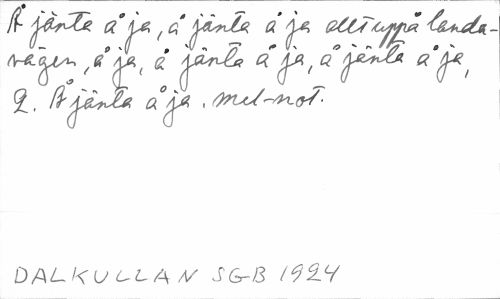 Å jänta å ja, å jänta å ja allt uppå landa-
vägen, å ja, å jänta å ja, å jänta å ja,
2. Å jänta å ja. mel-not.
DALKULLAN SGB 1924